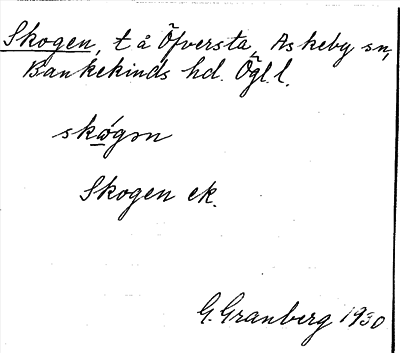 Skogen, t å Öfversta, Askeby sn,
Bankekinds hd. Ögl. l.
skógən
Skogen ek.
G. Granberg 1930